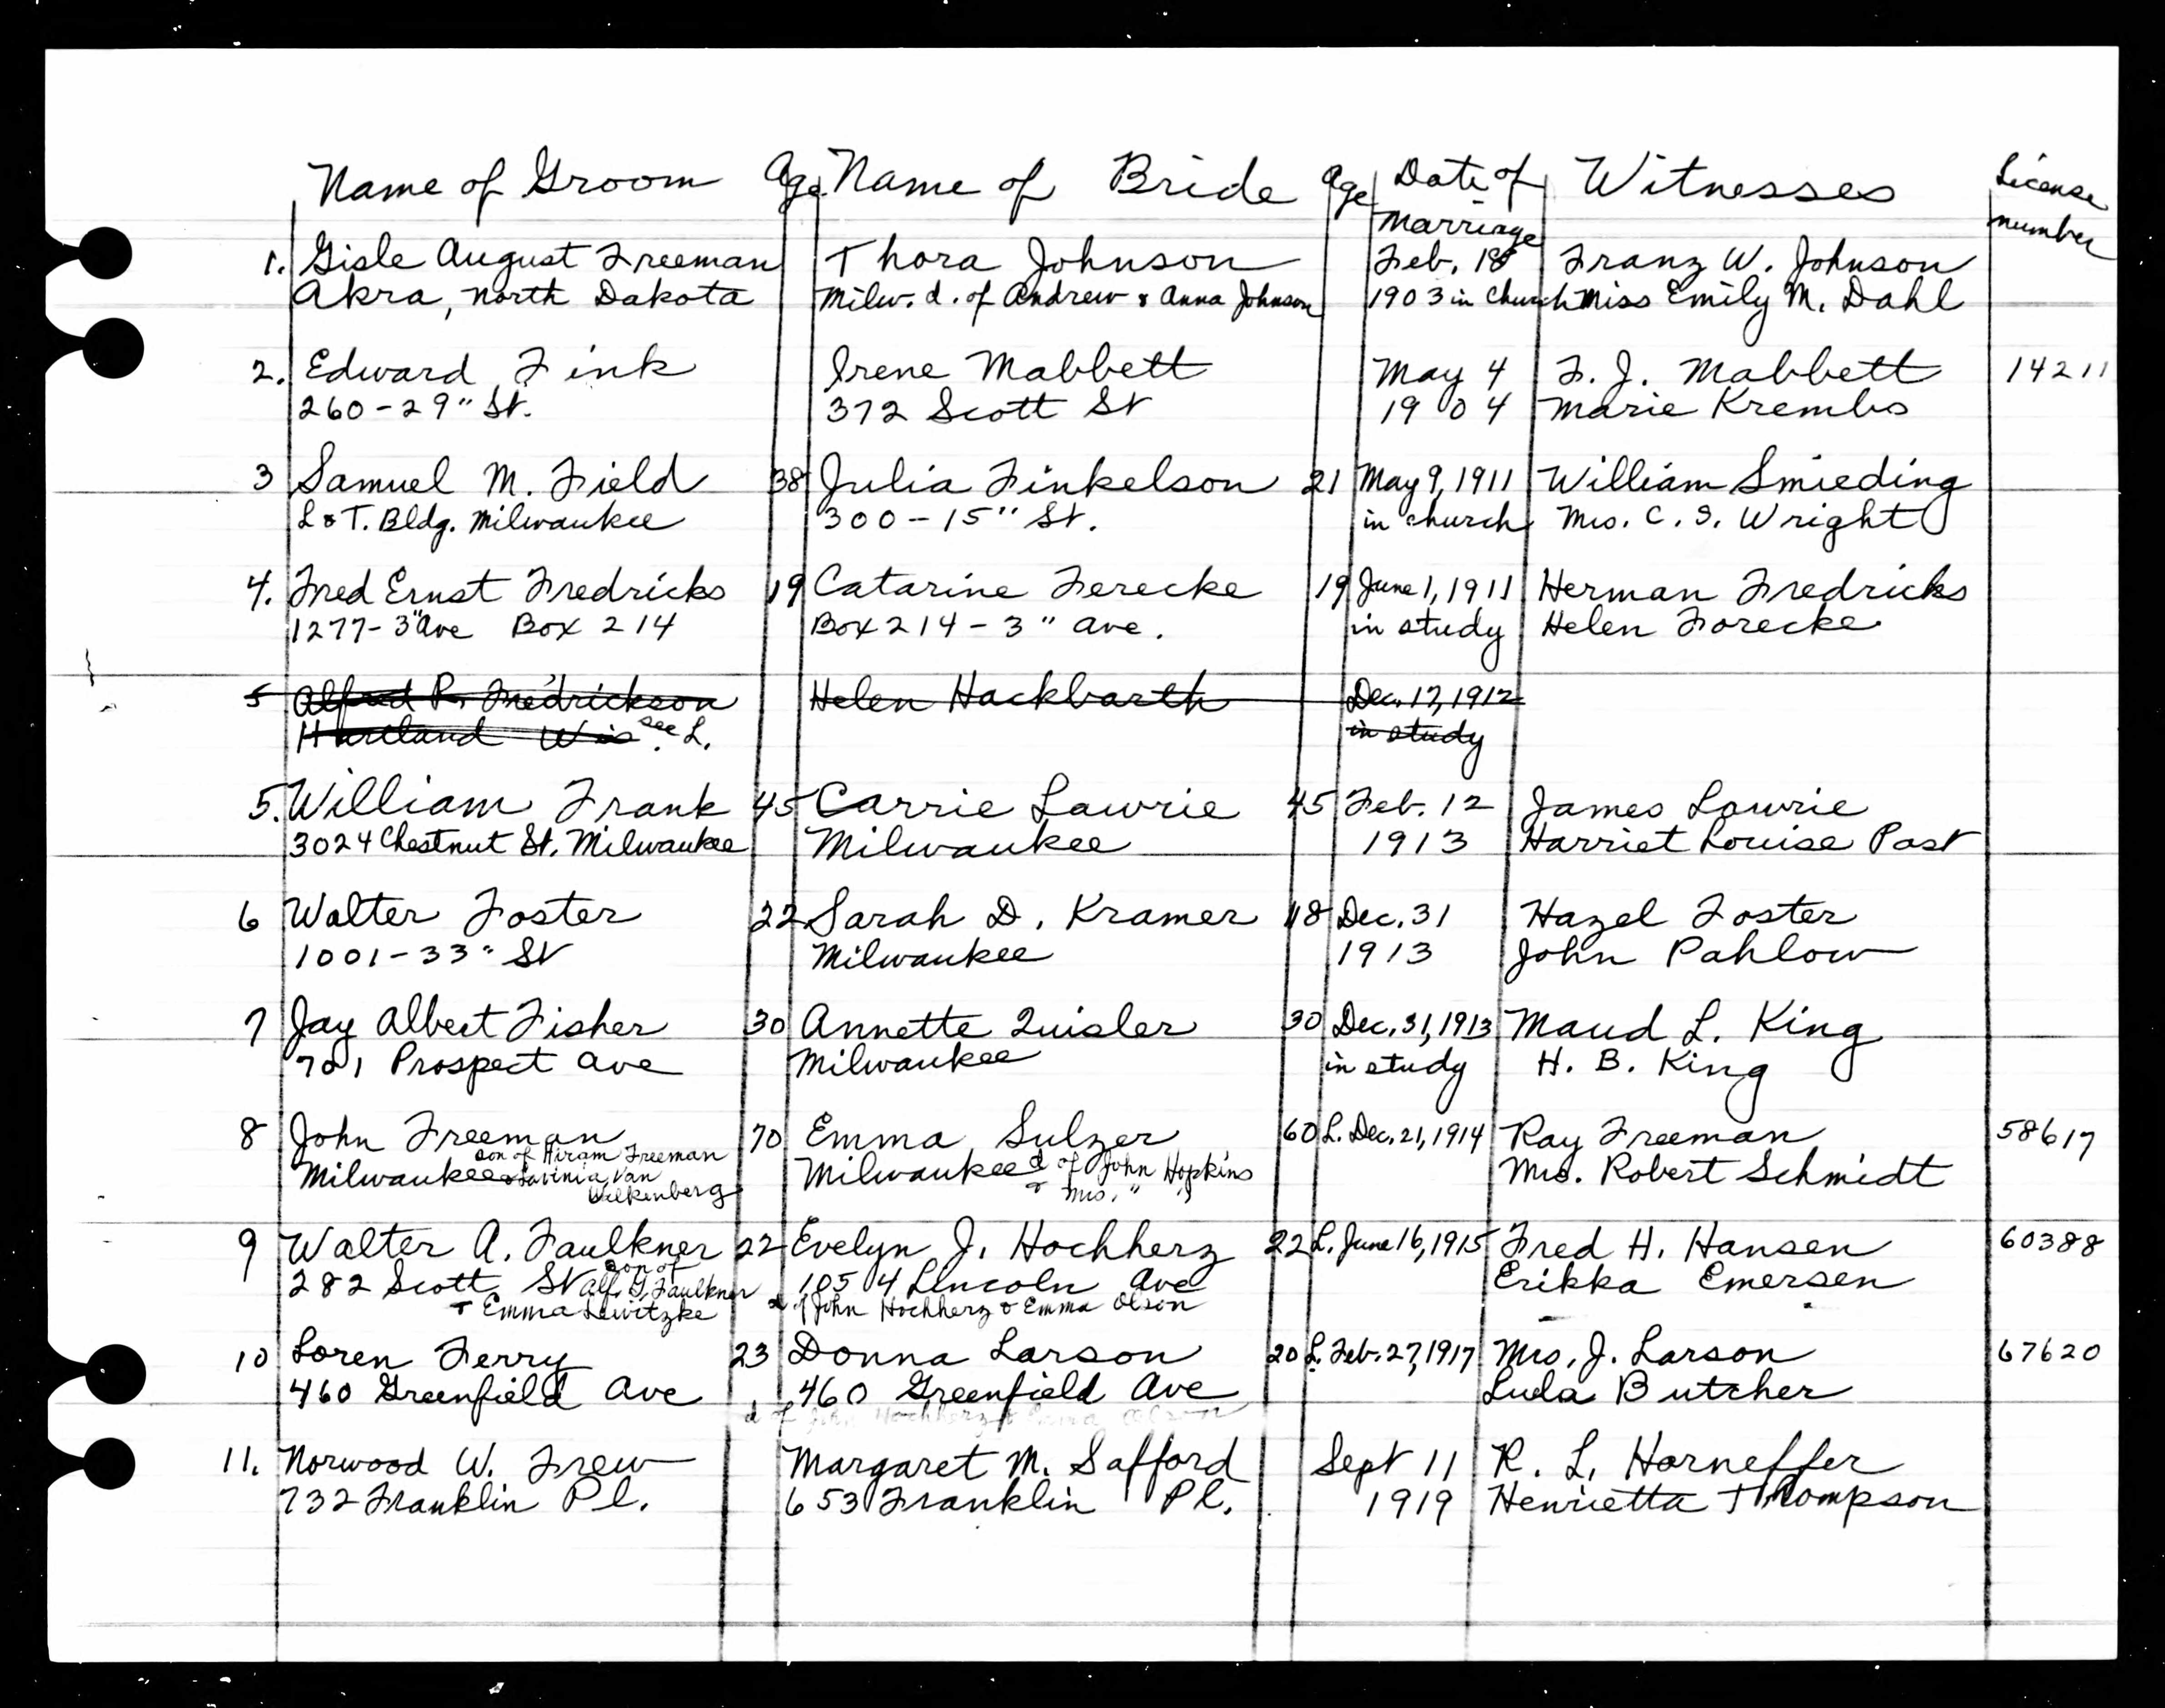 Name of Groom Age Name of Bride Age Date of Marriage Witnesses License number
1. Gisle August Freeman Thora Johnson Feb. 18 Franz W. Johnson
Akra, North Dakota Milw. d. of Andrew & Anna Johnson 1903 in church Miss Emily M. Dahl
2. Edward Fink Irene Mabbett May 4 F. J. Mabbett 14211
260-29" St. 372 Scott St 1904 Marie Krembs
3 Samuel M. Field 38 Julia Finkelson 21 May 9, 1911 William Smieding
L & T. Bldg. Milwaukee 300-15" St. in church Mrs. C. S. Wright
4. Fred Ernst Fredricks 19 Catarine Ferecke 19 June 1, 1911 Herman Fredricks
1277-3" Ave Box 214 Box 214-3" Ave. in study Helen Forecke
5 Alfred R. Fredrickson Helen Hackbarth Dec. 17, 1912
Hartland Wis. see L. in study
5. William Frank 45 Carrie Lawrie 45 Feb. 12 James Lawrie
3024 Chestnut St. Milwaukee Milwaukee 1913 Harriet Louise Past
6 Walter Foster 22 Sarah D. Kramer 18 Dec. 31 Hazel Foster
1001-33" St Milwaukee 1913 John Pahlow
7 Jay Albert Fisher 30 Annette Quisler 30 Dec. 31, 1913 Maud L. King
701 Prospect Ave Milwaukee in study H. B. King
8 John Freeman 70 Emma Sulzer 60 L. Dec. 21, 1914 Ray Freeman 58617
Milwaukee son of Hiram Freeman & Lavinia Van Milwaukee d of John Hopkins & Mrs. " " Mrs. Robert Schmidt
9 Walter A. Faulkner 22 Evelyn J. Hochherz 22 L. June 16, 1915 Fred H. Hansen 60388
282 Scott St son of Alf. G. Faulkner 1054 Lincoln Ave Erikka Emersen
& Emma Lewitzke d of John Hochherz & Emma Olson
10 Loren Ferry 23 Donna Larson 20 L. Feb. 27, 1917 Mrs. J. Larson 67620
460 Greenfield Ave 460 Greenfield Ave Lula Butcher
d of John Hochherz & Emma Olson
11. Norwood W. Frew Margaret M. Safford Sept 11 R. L. Horneffer
732 Franklin Pl. 653 Franklin Pl. 1919 Henrietta Thompson